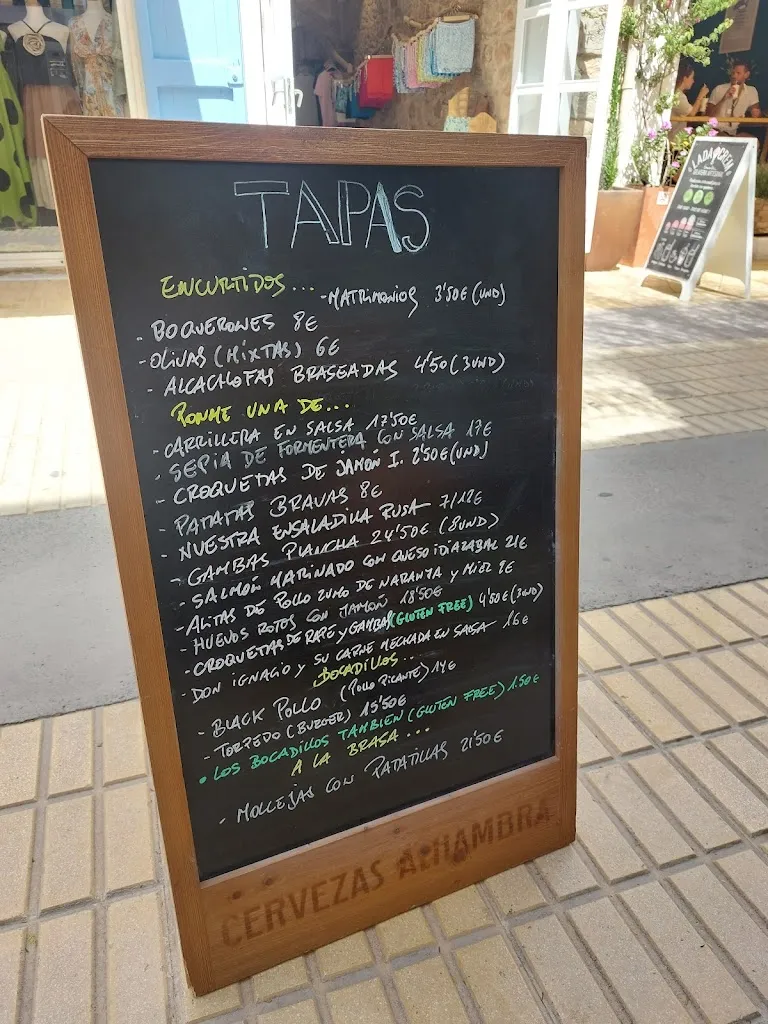 TAPAS
ENCURTIDOS...
-MATRIMONIOS 3'50€ (UND)
- BOQUERONES 8€
-OLIVAS (MIXTAS) 6€
- ALCACHOFAS BRASEADAS 4'50 (3UND)
PONME UNA DE...
-CARRILLERA EN SALSA 17'50€
- SEPIA DE FORMENTERA CON SALSA 17€
- CROQUETAS DE JAMÓN I. 2'50€ (UND)
- PATATAS BRAVAS 8€
- NUESTRA ENSALADILLA RUSA 7/12€
- GAMBAS PLANCHA 24'50€ (8UND)
- SALMÓN MARINADO CON QUESO IDIAZABAL 21€
- ALITAS DE POLLO ZUMO DE NARANJA Y MIEL 9€
- HUEVOS ROTOS CON JAMÓN 18'50€
- CROQUETAS DE RAPE Y GAMBAS (GLUTEN FREE) 4'50€ (3UND)
- DON IGNACIO Y SU CARNE MECHADA EN SALSA 16€
BOCADILLOS...
- BLACK POLLO (POLLO PICANTE) 14€
- TORPEDO (BURGER) 15'50€
• LOS BOCADILLOS TAMBIEN (GLUTEN FREE) 1.50€
A LA BRASA...
- MOLLEJAS CON PATATILLAS 21'50€
CERVEZAS ALHAMBRA